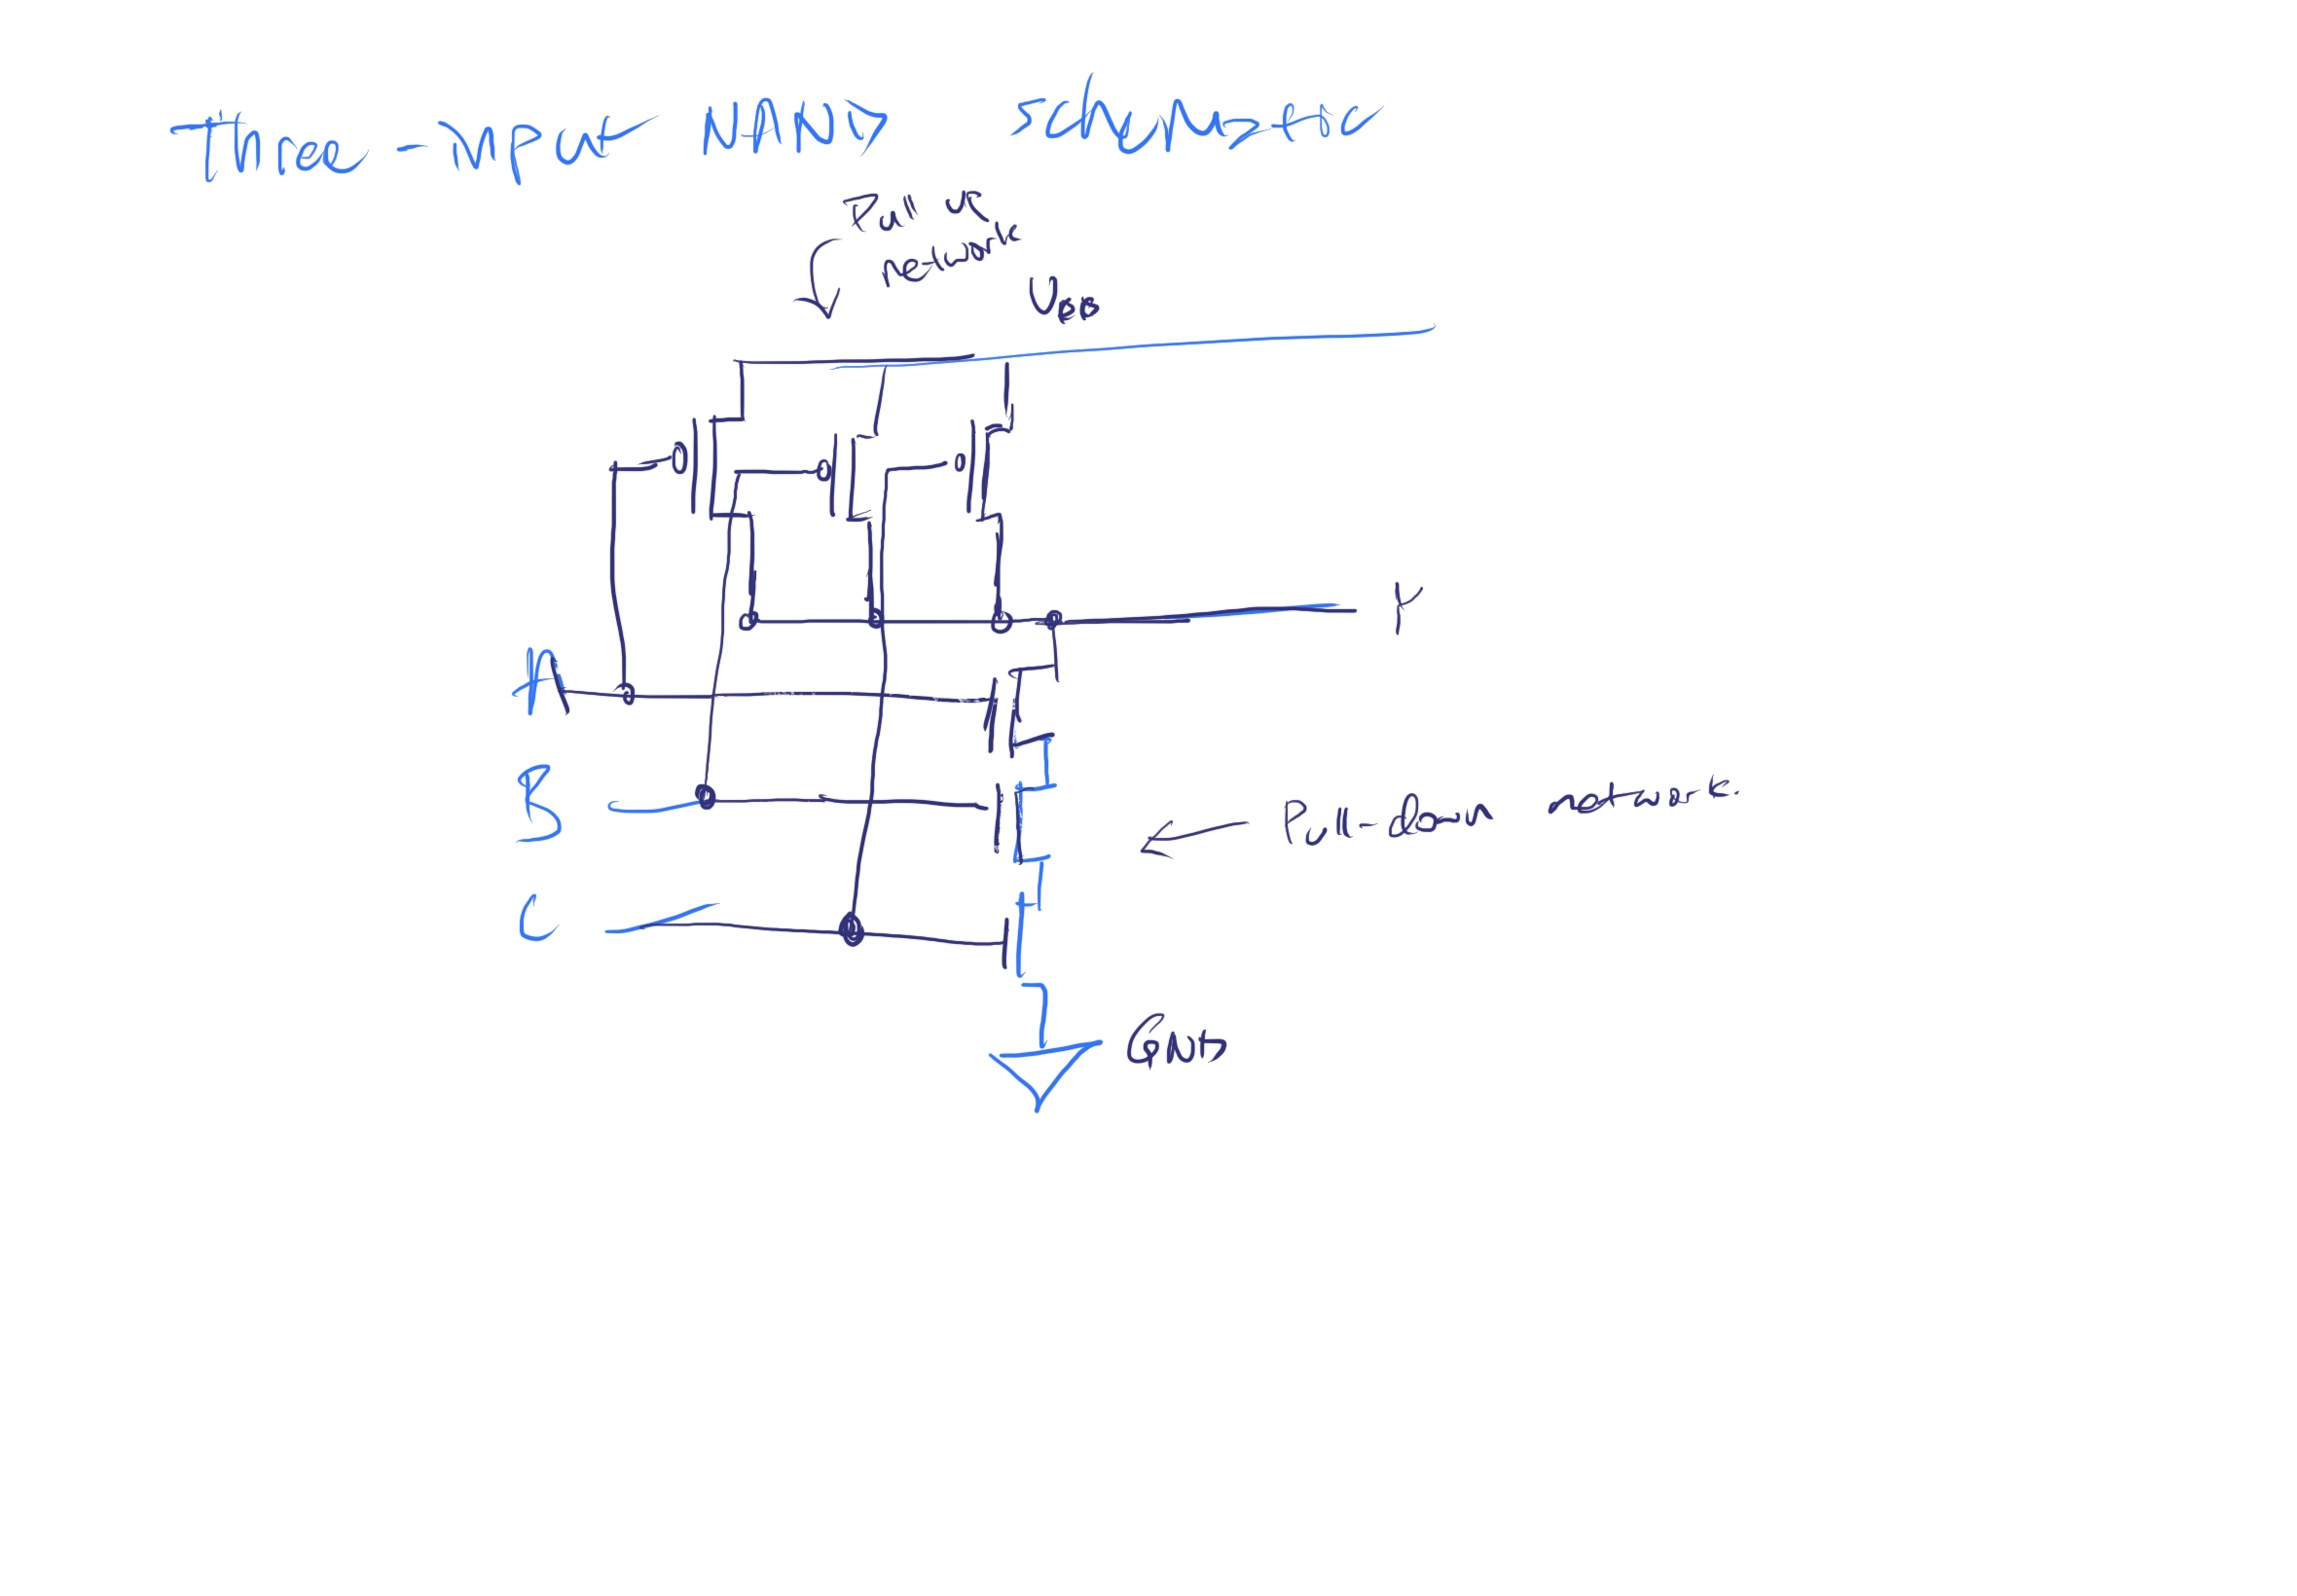 Three-input NAND schematic
Pull up
network
VDD
Y
A
B
Pull-down network.
C
GND